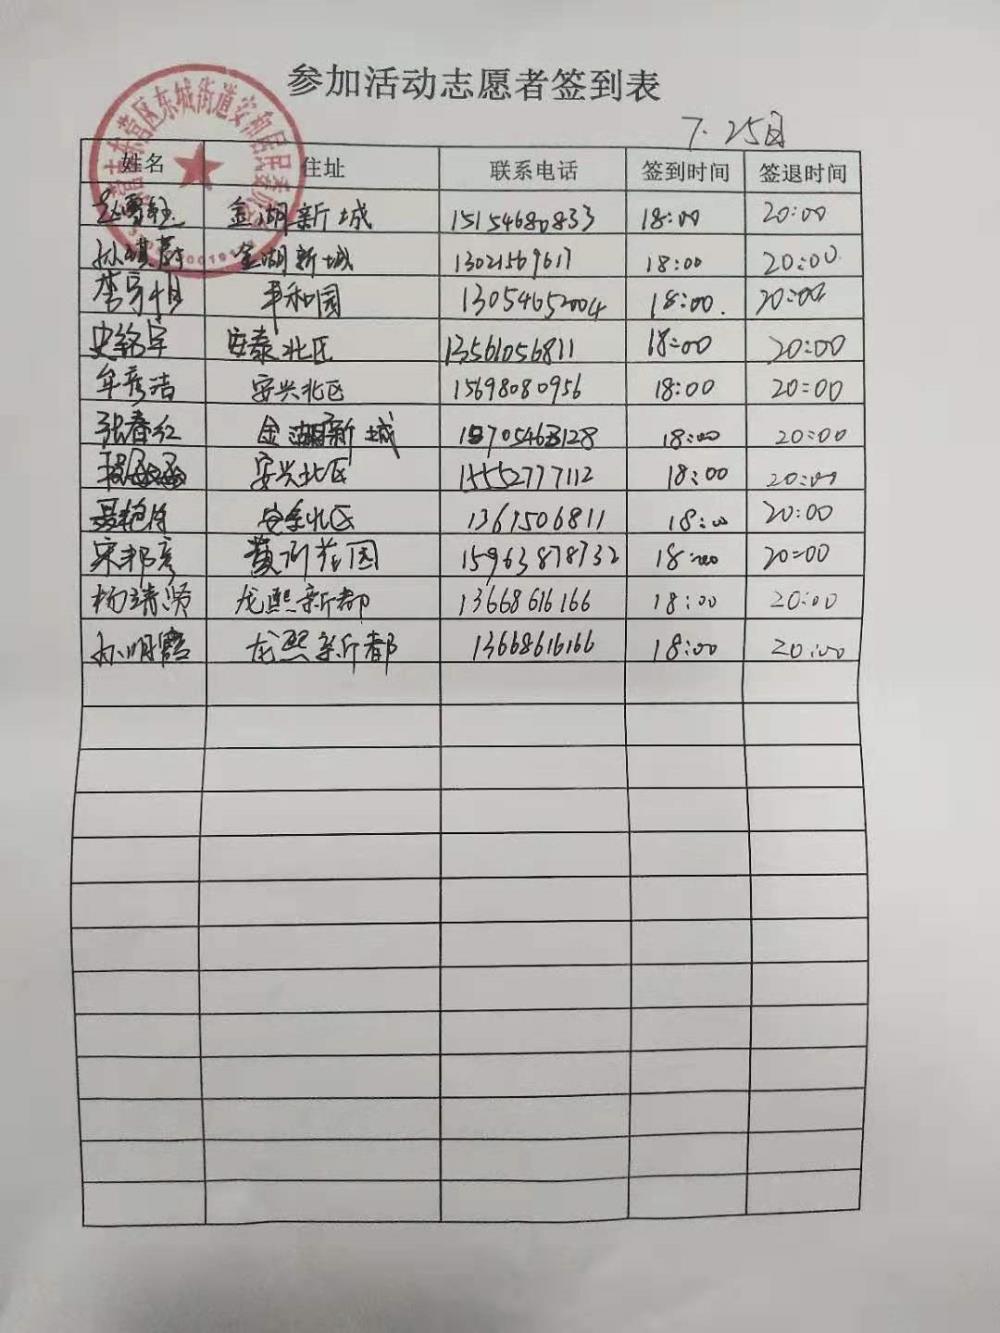 参加活动志愿者签到表
7.25日
姓名 住址 联系电话 签到时间 签退时间
金湖新城 15154680833 18:00 20:00
金湖新城 13021569617 18:00 20:00
丰和园 13054652004 18:00. 20:00
史铭宇 安泰北区 13561056811 18:00 20:00
牟彦洁 安兴北区 15698080956 18:00 20:00
张春红 金湖新城 18:00 20:00
安兴北区 15552777112 18:00 20:00
安泰北区 1361506811 18:00 20:00
宋邦彦 花园 15963878732 18:00 20:00
杨靖贤 龙熙新都 13668616166 18:00 20:00
孙明霞 龙熙新都 13668616166 18:00 20:00